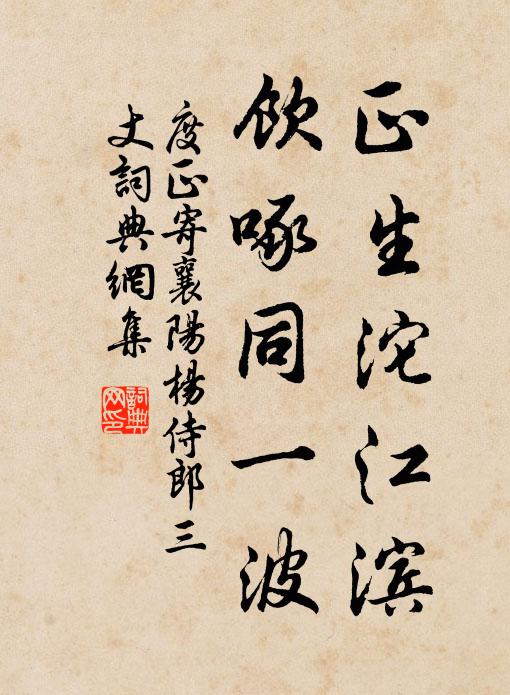 正生沱江滨
饮啄同一波
度正寄襄陽楊侍郎三
丈詞典網集
詞典網印